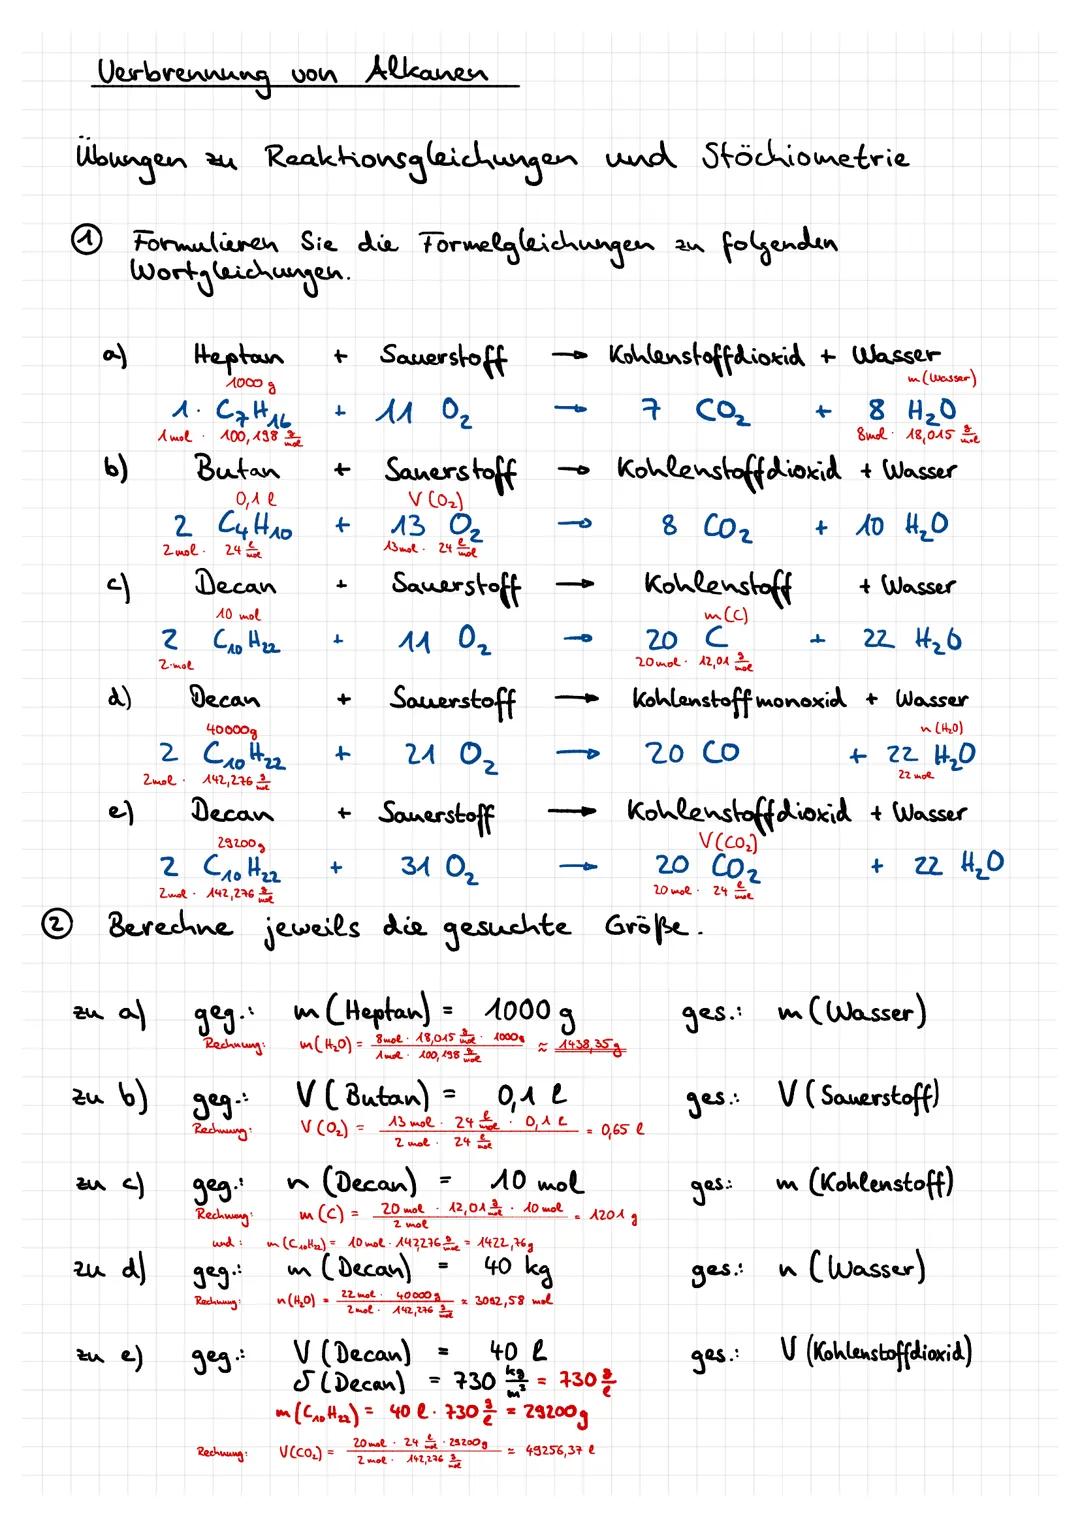 Verbrennung von Alkanen
Übungen zu Reaktionsgleichungen und Stöchiometrie
① Formulieren Sie die Formelgleichungen zu folgenden
Wortgleichungen.
a) Heptan + Sauerstoff → Kohlenstoffdioxid + Wasser
1000 g m (Wasser)
1 · C₇H₁₆ + 11 O₂ → 7 CO₂ + 8 H₂O
1 mol · 100,198 g/mol 8 mol · 18,015 g/mol
b) Butan + Sauerstoff → Kohlenstoffdioxid + Wasser
0,1 l V (O₂)
2 C₄H₁₀ + 13 O₂ → 8 CO₂ + 10 H₂O
2 mol · 24 l/mol 13 mol · 24 l/mol
c) Decan + Sauerstoff → Kohlenstoff + Wasser
10 mol m (C)
2 C₁₀H₂₂ + 11 O₂ → 20 C + 22 H₂O
2 · mol 20 mol · 12,01 g/mol
d) Decan + Sauerstoff → Kohlenstoffmonoxid + Wasser
40000g n (H₂O)
2 C₁₀H₂₂ + 21 O₂ → 20 CO + 22 H₂O
2 mol · 142,276 g/mol 22 mol
e) Decan + Sauerstoff → Kohlenstoffdioxid + Wasser
29200g V (CO₂)
2 C₁₀H₂₂ + 31 O₂ → 20 CO₂ + 22 H₂O
2 mol · 142,276 g/mol 20 mol · 24 l/mol
② Berechne jeweils die gesuchte Größe.
zu a) geg.: m (Heptan) = 1000 g ges.: m (Wasser)
Rechnung: m (H₂O) = (8 mol · 18,015 g/mol · 1000g) / (1 mol · 100,198 g/mol) ≈ 1438,35 g
zu b) geg.: V (Butan) = 0,1 l ges.: V (Sauerstoff)
Rechnung: V (O₂) = (13 mol · 24 l/mol · 0,1 l) / (2 mol · 24 l/mol) = 0,65 l
zu c) geg.: n (Decan) = 10 mol ges.: m (Kohlenstoff)
Rechnung: m (C) = (20 mol · 12,01 g/mol · 10 mol) / (2 mol) = 1201 g
und: m (C₁₀H₂₂) = 10 mol · 142,276 g/mol = 1422,76g
zu d) geg.: m (Decan) = 40 kg ges.: n (Wasser)
Rechnung: n (H₂O) = (22 mol · 40000 g) / (2 mol · 142,276 g/mol) ≈ 3092,58 mol
zu e) geg.: V (Decan) = 40 l ges.: V (Kohlenstoffdioxid)
δ (Decan) = 730 kg/m³ = 730 g/l
m (C₁₀H₂₂) = 40 l · 730 g/l = 29200g
Rechnung: V (CO₂) = (20 mol · 24 l/mol · 29200g) / (2 mol · 142,276 g/mol) ≈ 49256,37 l